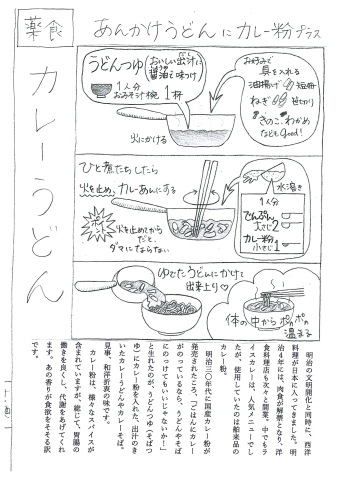 薬食
カレーうどん
あんかけうどんにカレー粉プラス
うどんつゆ
おいしい出汁に
醤油で味つけ
1人分
おみそ汁椀 1杯
火にかける
お好みで
具を入れる
油揚げ 短冊
ねぎ
きのこ、わかめ
などもgood!
ひと煮たちしたら
火を止め、カレーあんにする
ポイント
火を止めてから
だと、
ダマにならない
水溶き
1人分
でんぷん
大さじ2
カレー粉
小さじ1
ゆでたうどんにかけて
出来上り♡
体の中からポカポカ
温まる
明治の文明開化と同時に、西洋
料理が日本に入ってきました。明
治4年には、肉食が解禁となり、洋
食料理店も次々と開業。中でもラ
イスカレーは、人気メニューでし
たが、使用していたのは舶来品の
カレー粉。
明治三〇年代に国産カレー粉が
発売されたころ、「ごはんにカレー
がのっているなら、うどんやそば
にのってもいいじゃないか！」
と生れたのが、うどんつゆ（そばつ
ゆ）にカレー粉を入れた、出汁のき
いたカレーうどんやカレーそば。
見事、和洋折衷の味です。
カレー粉は、様々なスパイスが
含まれていますが、総じて、胃腸の
働きを良くし、代謝をあげてくれ
ます。あの香りが食欲をそそる訳
です。